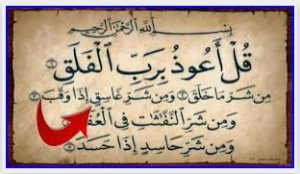 بِسْمِ اللَّهِ الرَّحْمَٰنِ الرَّحِيمِ
قُلْ أَعُوذُ بِرَبِّ الْفَلَقِ
مِن شَرِّ مَا خَلَقَ وَمِن شَرِّ غَاسِقٍ إِذَا وَقَبَ
وَمِن شَرِّ النَّفَّٰثَٰتِ فِي الْعُقَدِ
وَمِن شَرِّ حَاسِدٍ إِذَا حَسَدَ